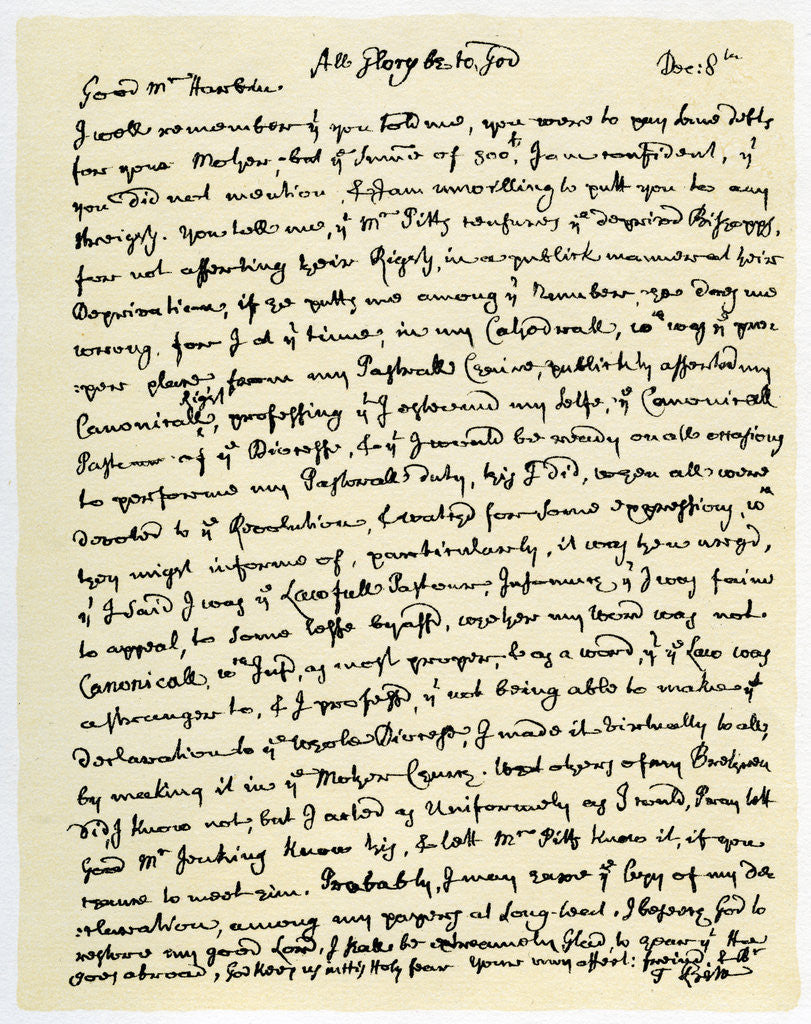 All Glory be to God
Dec: 8th
Good Mr Harbin.
I well remember yt you told me, you were to pay some debts
for your Mother, but ye summe of 500l, I am confident, yt
you did not mention, & I am unwilling to putt you to any
streights. You tell me, yt Mr Pitts censures ye deprived Bishopps,
for not asserting their Rights, in a publick manner at their
Deprivation, if he putts me among yt Number, he does me
wrong, for I at yt time, in my Cathedrall, wch was ye pro-
:per place, from my Pastorall Chaire, publickly asserted my
Canonicall Right, professing yt I esteemed my selfe, ye Canonicall
Pastour of ye Diocesse, & yt I would be ready on all occasions
to performe my Pastorall duty, this I did, when all were
devoted to ye Revolution, & waited for some expressions, wch
they might informe of, particularly, it was then urgd,
yt I said I was ye Lawfull Pastour, Insomuch yt I was faine
to appeal, to some lesse byassd, whether my word was not
Canonicall, wch I usd, as most proper, & as a word, yt ye Law was
a stranger to, & I professd, yt not being able to make yt
declaration to ye whole Diocese, I made it virtually to all,
by making it in ye Mother Church. What others of my Brethren
did, I know not, but I acted as Uniformely as I could, Pray lett
Good Mr Jenkins know this, & lett Mr Pitts know it, if you
chance to meet him. Probably, I may have ye Copy of my de-
:claration, among my papers at Long-leat. I beseech God to
restore my good Lord, I shall be extreamely Glad, to hear yt He
goes abroad, God keep us in His Holy fear Your very affect: freind, & Br
T Bath